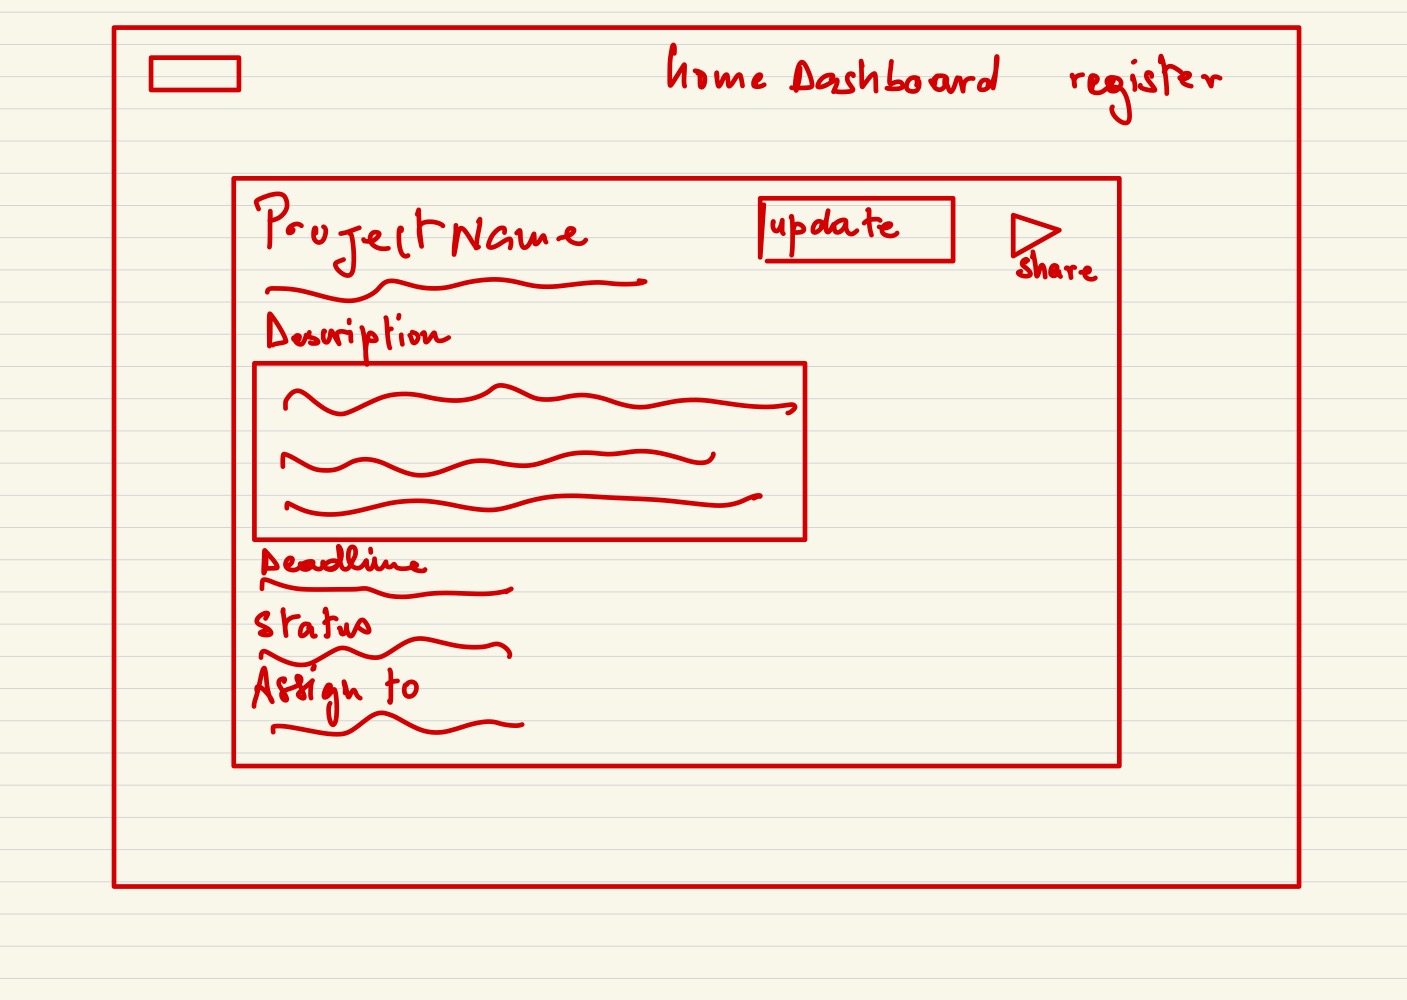 home Dashboard register
Project Name
update
share
Description
Deadline
Status
Assign to